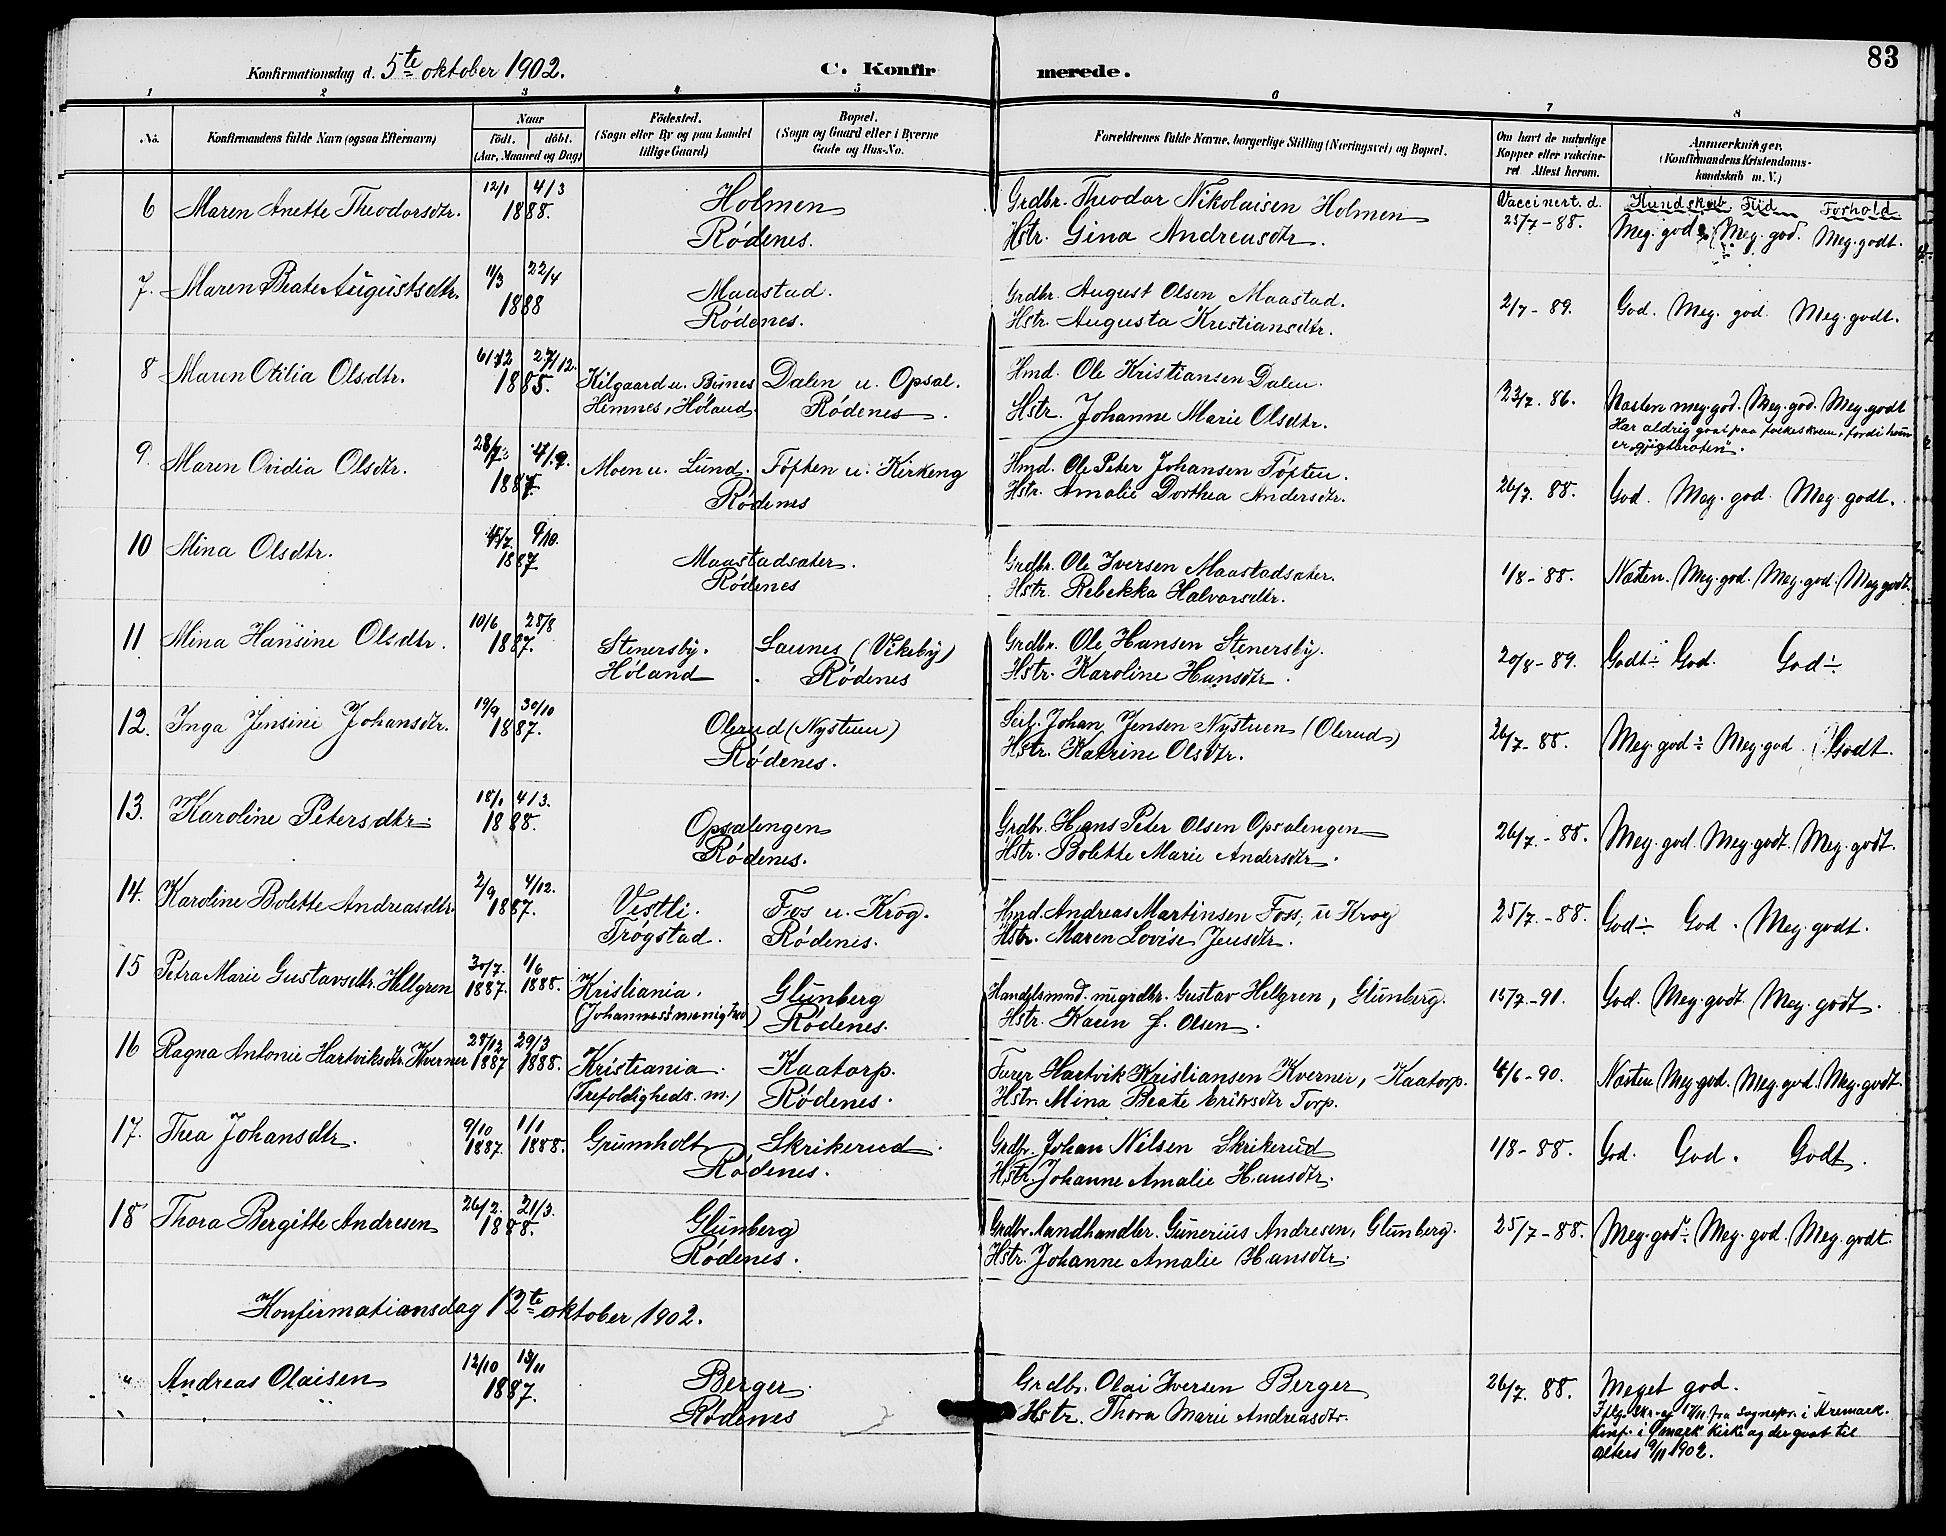 83
Konfirmationsdag d. 5te oktober 1902.
C. Konfirmerede.
1 2 3 4 5 6 7 8
No.
Konfirmandens fulde Navn (ogsaa Efternavn)
Naar
født. døbt.
(Aar, Maaned og Dag)
Fødested.
(Sogn eller By og paa Landet
tillige Gaard)
Bopæl.
(Sogn og Gaard eller i Byerne
Gade og Hus-No.
Forældrenes fulde Navne, borgerlige Stilling (Næringsvei) og Bopæl.
Om havt de naturlige
Kopper eller vakcine-
ret Attest herom.
Anmærkninger.
(Konfirmandens Kristendoms-
kundskab m. V.)
Vaccinert. d. Kundskab Flid Forhold
6 Maren Anette Theodorsdtr. 12/1 4/3 1888. Holmen Rødenes.
Grdbr. Theodor Nikolaisen Holmen
Hstr. Gina Andreasdtr.
25/7-88. Meg. god ÷ Meg. god. Meg. godt.
7. Maren Beate Augustsdtr. 11/3 22/4 1888 Maastad. Rødenes.
Grdbr. August Olsen Maastad.
Hstr. Augusta Kristiansdtr.
2/7-89. God. Meg. god. Meg. godt.
8 Maren Otilia Olsdtr. 27/12. 1885. Kilgaard u. Hemnes, Høland. Dalen u. Opsal. Rødenes.
Hmd. Ole Kristiansen Dalen.
Hstr. Johanne Marie Olsdtr.
23/7. 86. Næsten meg. god. Meg. god. Meg. godt
Har aldrig gaat paa folkeskolen, fordi hun
er gjigtbroten.
9. Maren Ovidia Olsdtr. 1887. Moen u. Lund. Toften u. Kirkeng Rødenes
Hmd. Ole Peter Johansen Toften.
Hstr. Amalie Dorthea Andersdtr.
26/7. 88. God. Meg. god. Meg. godt.
10 Mina Olsdtr. 9/10. 1887 Maastadsæter. Rødenes
Grdbr. Ole Iversen Maastadsæter.
Hstr. Rebekka Halvorsdtr.
1/8-88. Næsten. Meg. god. Meg. god. Meg. godt.
11 Mina Hansine Olsdtr. 10/6 28/8 1887. Stenersby. Høland. Saunes (Vikeby) Rødenes
Grdbr. Ole Hansen Stenersby.
Hstr. Karoline Hansdtr.
20/8-89. Godt ÷ God. God ÷
12. Inga Jensine Johansdtr. 19/9 30/10 1887. Olerud (Nystuen) Rødenes.
Johan Jensen Nystuen (Olerud)
Hstr. Katrine Olsdtr.
26/7-88. Meg. god ÷ Meg. god. Godt.
13. Karoline Petersdtr. 18/1 4/3. 1888. Opsalengen Rødenes.
Grdbr. Hans Peter Olsen Opsalengen
Hstr. Bolette Marie Andersdtr.
26/7.-88. Meg. god. Meg. godt. Meg. godt.
14. Karoline Bolette Andreasdtr. 2/9 4/12. 1887. Vestli. Trøgstad. Fos u. Krog. Rødenes.
Hmd. Andreas Martinsen Foss, u Krog
Hstr. Maren Lovise Jensdtr.
25/7.-88. God ÷ God. Meg. godt.
15 Petra Marie Gustavsdtr. Hellgren 30/7. 1887. 1/6 1888. Kristiania. (Johannesmenighed) Glünberg Rødenes.
Handelsmnd. Gustav Hellgren, Glünberg.
Hstr. Karen J. Olsen.
15/7-91. God. Meg. godt. Meg. godt.
16 Ragna Antonie Hartviksdtr. Kverner 28/12 1887 29/3 1888. Kristiania. (Trefoldigheds. m.) Kaatorp. Rødenes.
Hartvik Kristiansen Kverner, Kaatorp.
Hstr. Mina Beate Eriksdtr Torp.
4/6-90. Næsten Meg. god. Meg. god. Meg. godt.
17. Thea Johansdtr. 9/10 1887. 1/1 1888. Grumholt Skrikerud. Rødenes.
Grdbr. Johan Nilsen Skrikerud
Hstr. Johanne Amalie Hansdtr.
1/8-88. God. God. Godt.
18 Thora Bergitte Andresen 26/2. 21/3. 1888. Glünberg Rødenes.
Grdbr. Landhandler. Gunerius Andresen, Glünberg.
Hstr. Johanne Amalie Hansdtr.
25/7-88. Meg. god ÷. Meg. god. Meg. godt.
Konfirmationsdag 12te oktober 1902.
" Andreas Olaisen 12/10 13/11 1887. Berger Rødenes
Grdbr. Olai Iversen Berger
Hstr. Thora Marie Andreasdtr.
26/7. 88. Meget god.
Iflg. skr. af 17/11 fra sognepr. i Aremark.
Konf. i Ømark kirke og der gaat til
alters 9/11 1902.